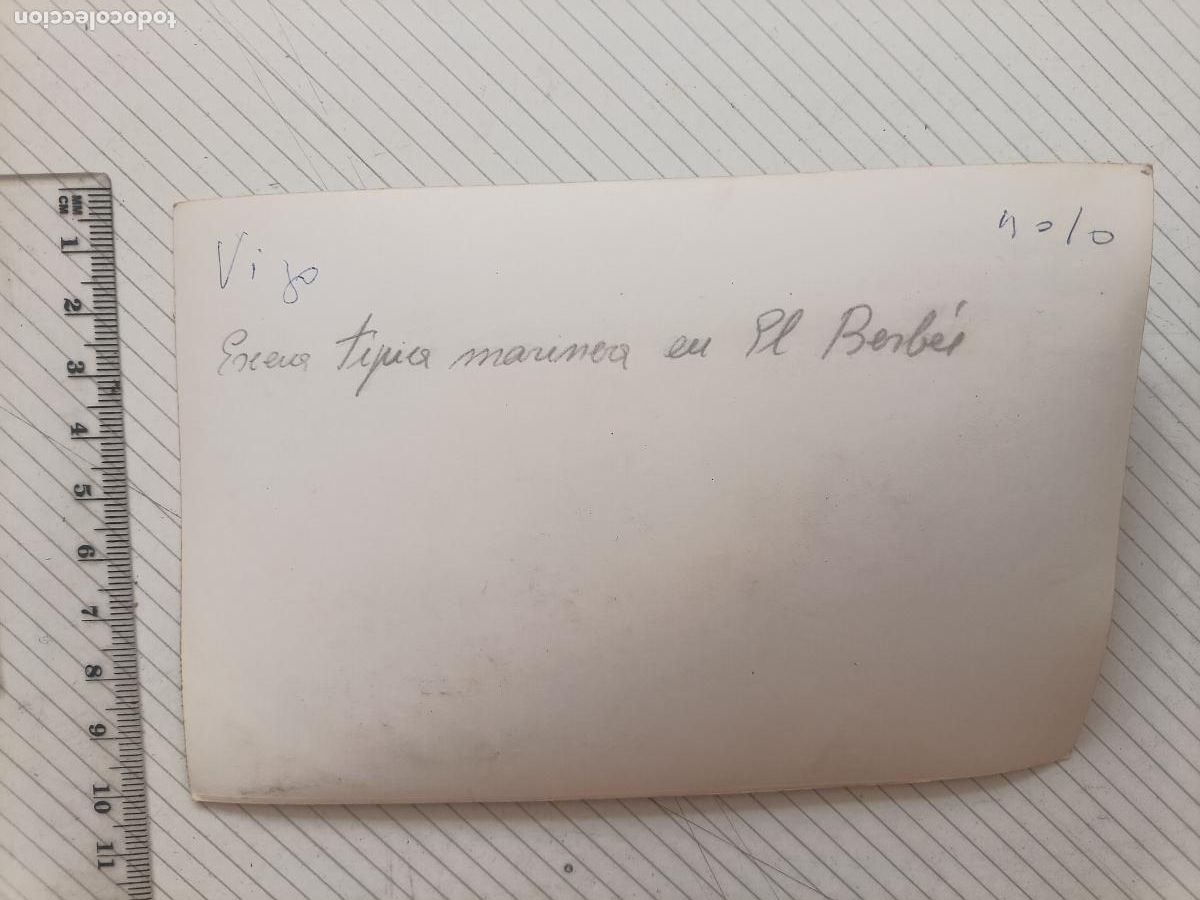 todocoleccion
Vigo
Escena típica marinera en El Berbés
MM
CM
1
2
3
4
5
6
7
8
9
10
11